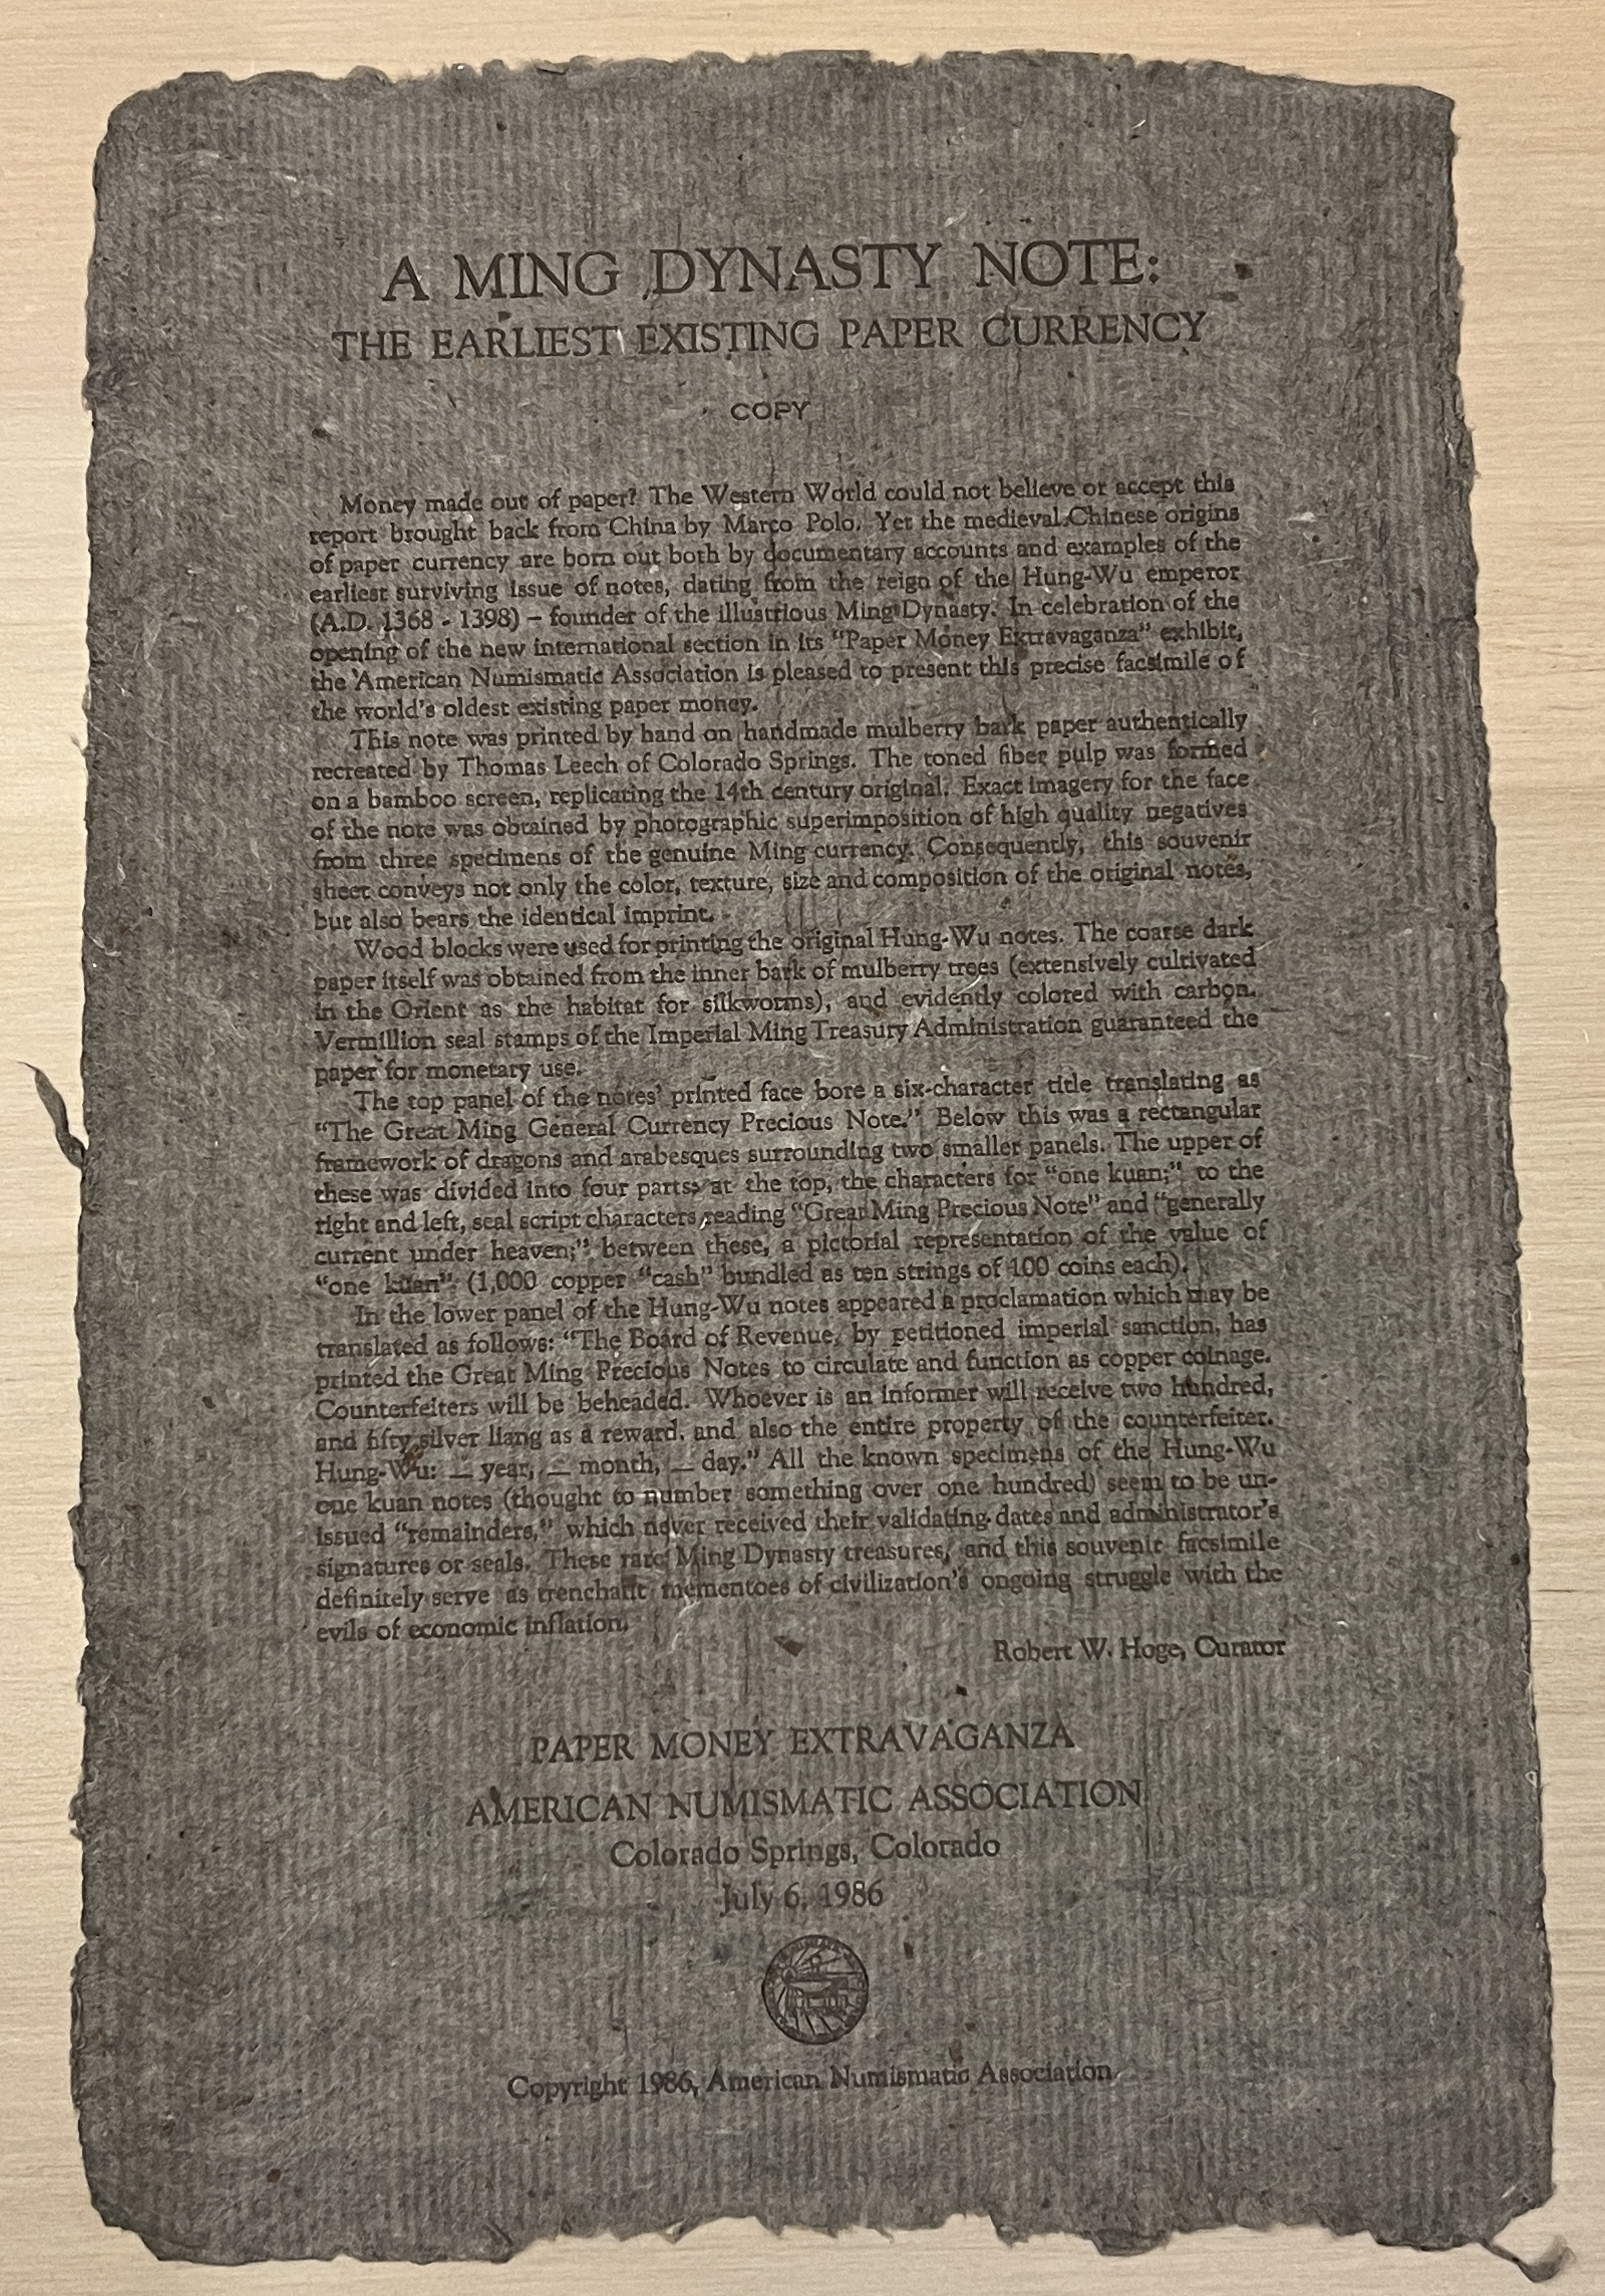 A MING DYNASTY NOTE:
THE EARLIEST EXISTING PAPER CURRENCY
COPY
Money made out of paper? The Western World could not believe or accept this
report brought back from China by Marco Polo. Yet the medieval Chinese origins
of paper currency are born out both by documentary accounts and examples of the
earliest surviving issue of notes, dating from the reign of the Hung-Wu emperor
(A.D. 1368 - 1398) – founder of the illustrious Ming Dynasty. In celebration of the
opening of the new international section in its "Paper Money Extravaganza" exhibit,
the American Numismatic Association is pleased to present this precise facsimile of
the world's oldest existing paper money.
This note was printed by hand on handmade mulberry bark paper authentically
recreated by Thomas Leech of Colorado Springs. The toned fiber pulp was formed
on a bamboo screen, replicating the 14th century original. Exact imagery for the face
of the note was obtained by photographic superimposition of high quality negatives
from three specimens of the genuine Ming currency. Consequently, this souvenir
sheet conveys not only the color, texture, size and composition of the original notes,
but also bears the identical imprint.
Wood blocks were used for printing the original Hung-Wu notes. The coarse dark
paper itself was obtained from the inner bark of mulberry trees (extensively cultivated
in the Orient as the habitat for silkworms), and evidently colored with carbon.
Vermillion seal stamps of the Imperial Ming Treasury Administration guaranteed the
paper for monetary use.
The top panel of the notes' printed face bore a six-character title translating as
"The Great Ming General Currency Precious Note." Below this was a rectangular
framework of dragons and arabesques surrounding two smaller panels. The upper of
these was divided into four parts: at the top, the characters for "one kuan;" to the
right and left, seal script characters reading "Great Ming Precious Note" and "generally
current under heaven;" between these, a pictorial representation of the value of
"one kuan" (1,000 copper "cash" bundled as ten strings of 100 coins each).
In the lower panel of the Hung-Wu notes appeared a proclamation which may be
translated as follows: "The Board of Revenue, by petitioned imperial sanction, has
printed the Great Ming Precious Notes to circulate and function as copper coinage.
Counterfeiters will be beheaded. Whoever is an informer will receive two hundred,
and fifty silver liang as a reward, and also the entire property of the counterfeiter.
Hung-Wu: _ year, _ month, _ day." All the known specimens of the Hung-Wu
one kuan notes (thought to number something over one hundred) seem to be un-
issued "remainders," which never received their validating dates and administrator's
signatures or seals. These rare Ming Dynasty treasures, and this souvenir facsimile
definitely serve as trenchant mementoes of civilization's ongoing struggle with the
evils of economic inflation.
Robert W. Hoge, Curator
PAPER MONEY EXTRAVAGANZA
AMERICAN NUMISMATIC ASSOCIATION
Colorado Springs, Colorado
July 6, 1986
Copyright 1986, American Numismatic Association